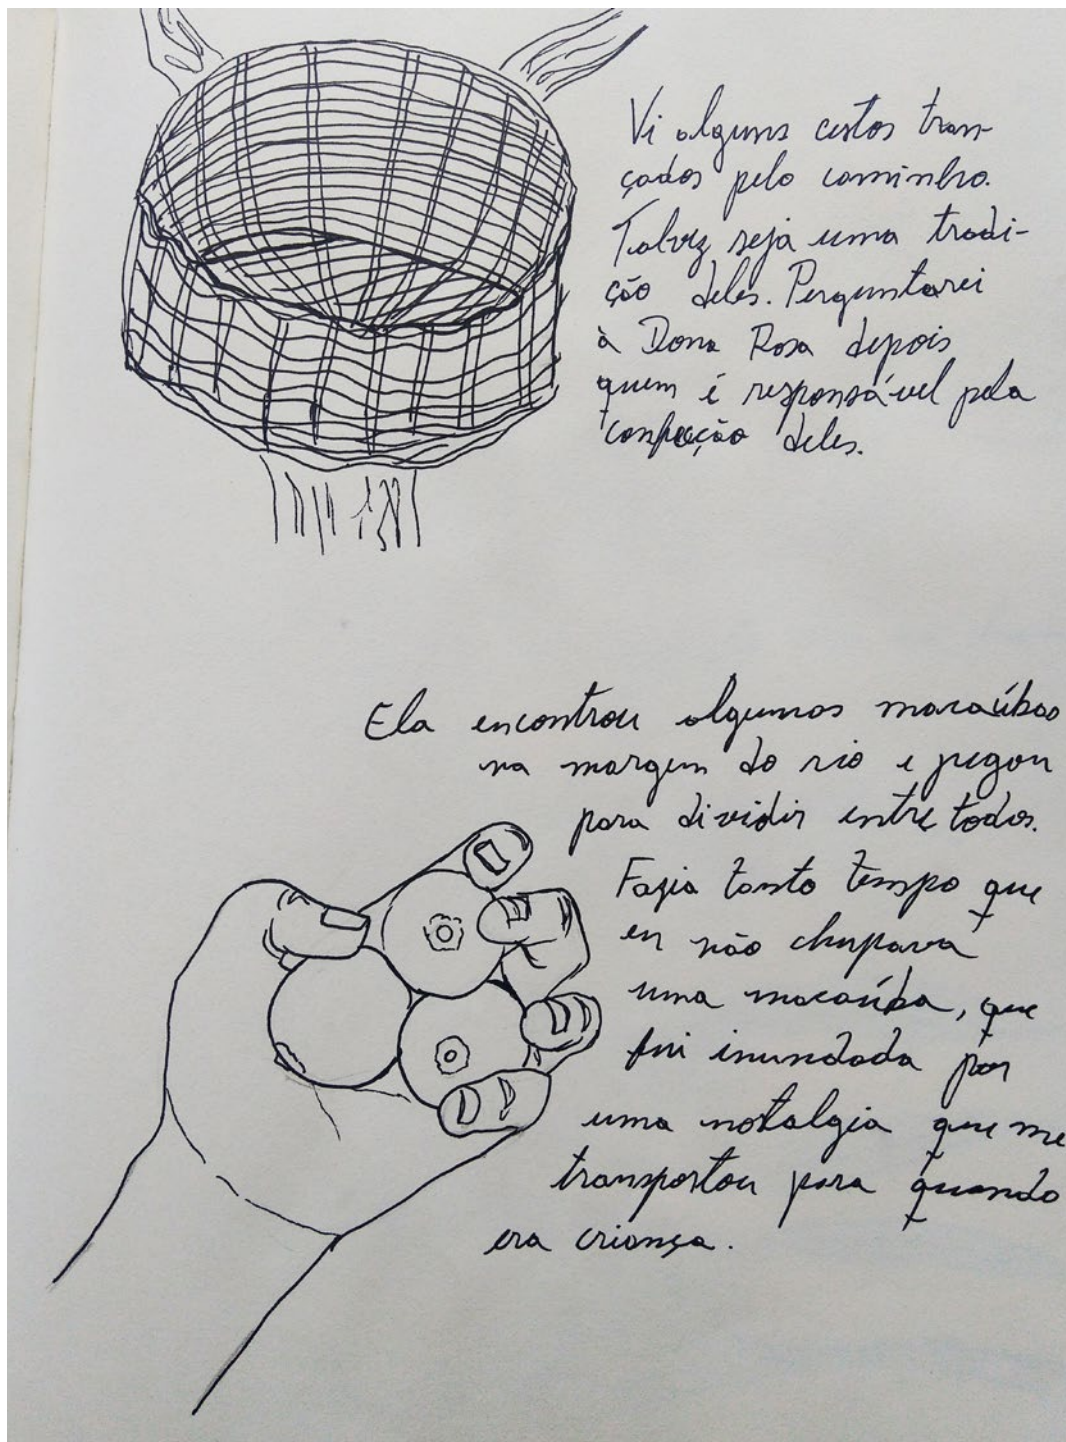 Vi alguns cestos tran-
çados pelo caminho.
Talvez seja uma tradi-
ção deles. Perguntarei
à Dona Rosa depois
quem é responsável pela
confecção deles.
Ela encontrou algumas macaúbas
na margem do rio e pegou
para dividir entre todos.
Fazia tanto tempo que
eu não chupava
uma macaúba, que
fui inundada por
uma nostalgia que me
transportou para quando
era criança.